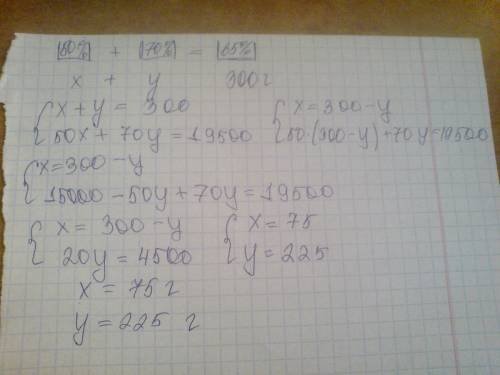 50% + 70% = 65%
x + y 300г
{ x + y = 300 { x = 300 - y
50x + 70y = 19500 50·(300-y)+70y=19500
{ x = 300 - y
15000 - 50y + 70y = 19500
{ x = 300 - y { x = 75
20y = 4500 y = 225
x = 75 г
y = 225 г